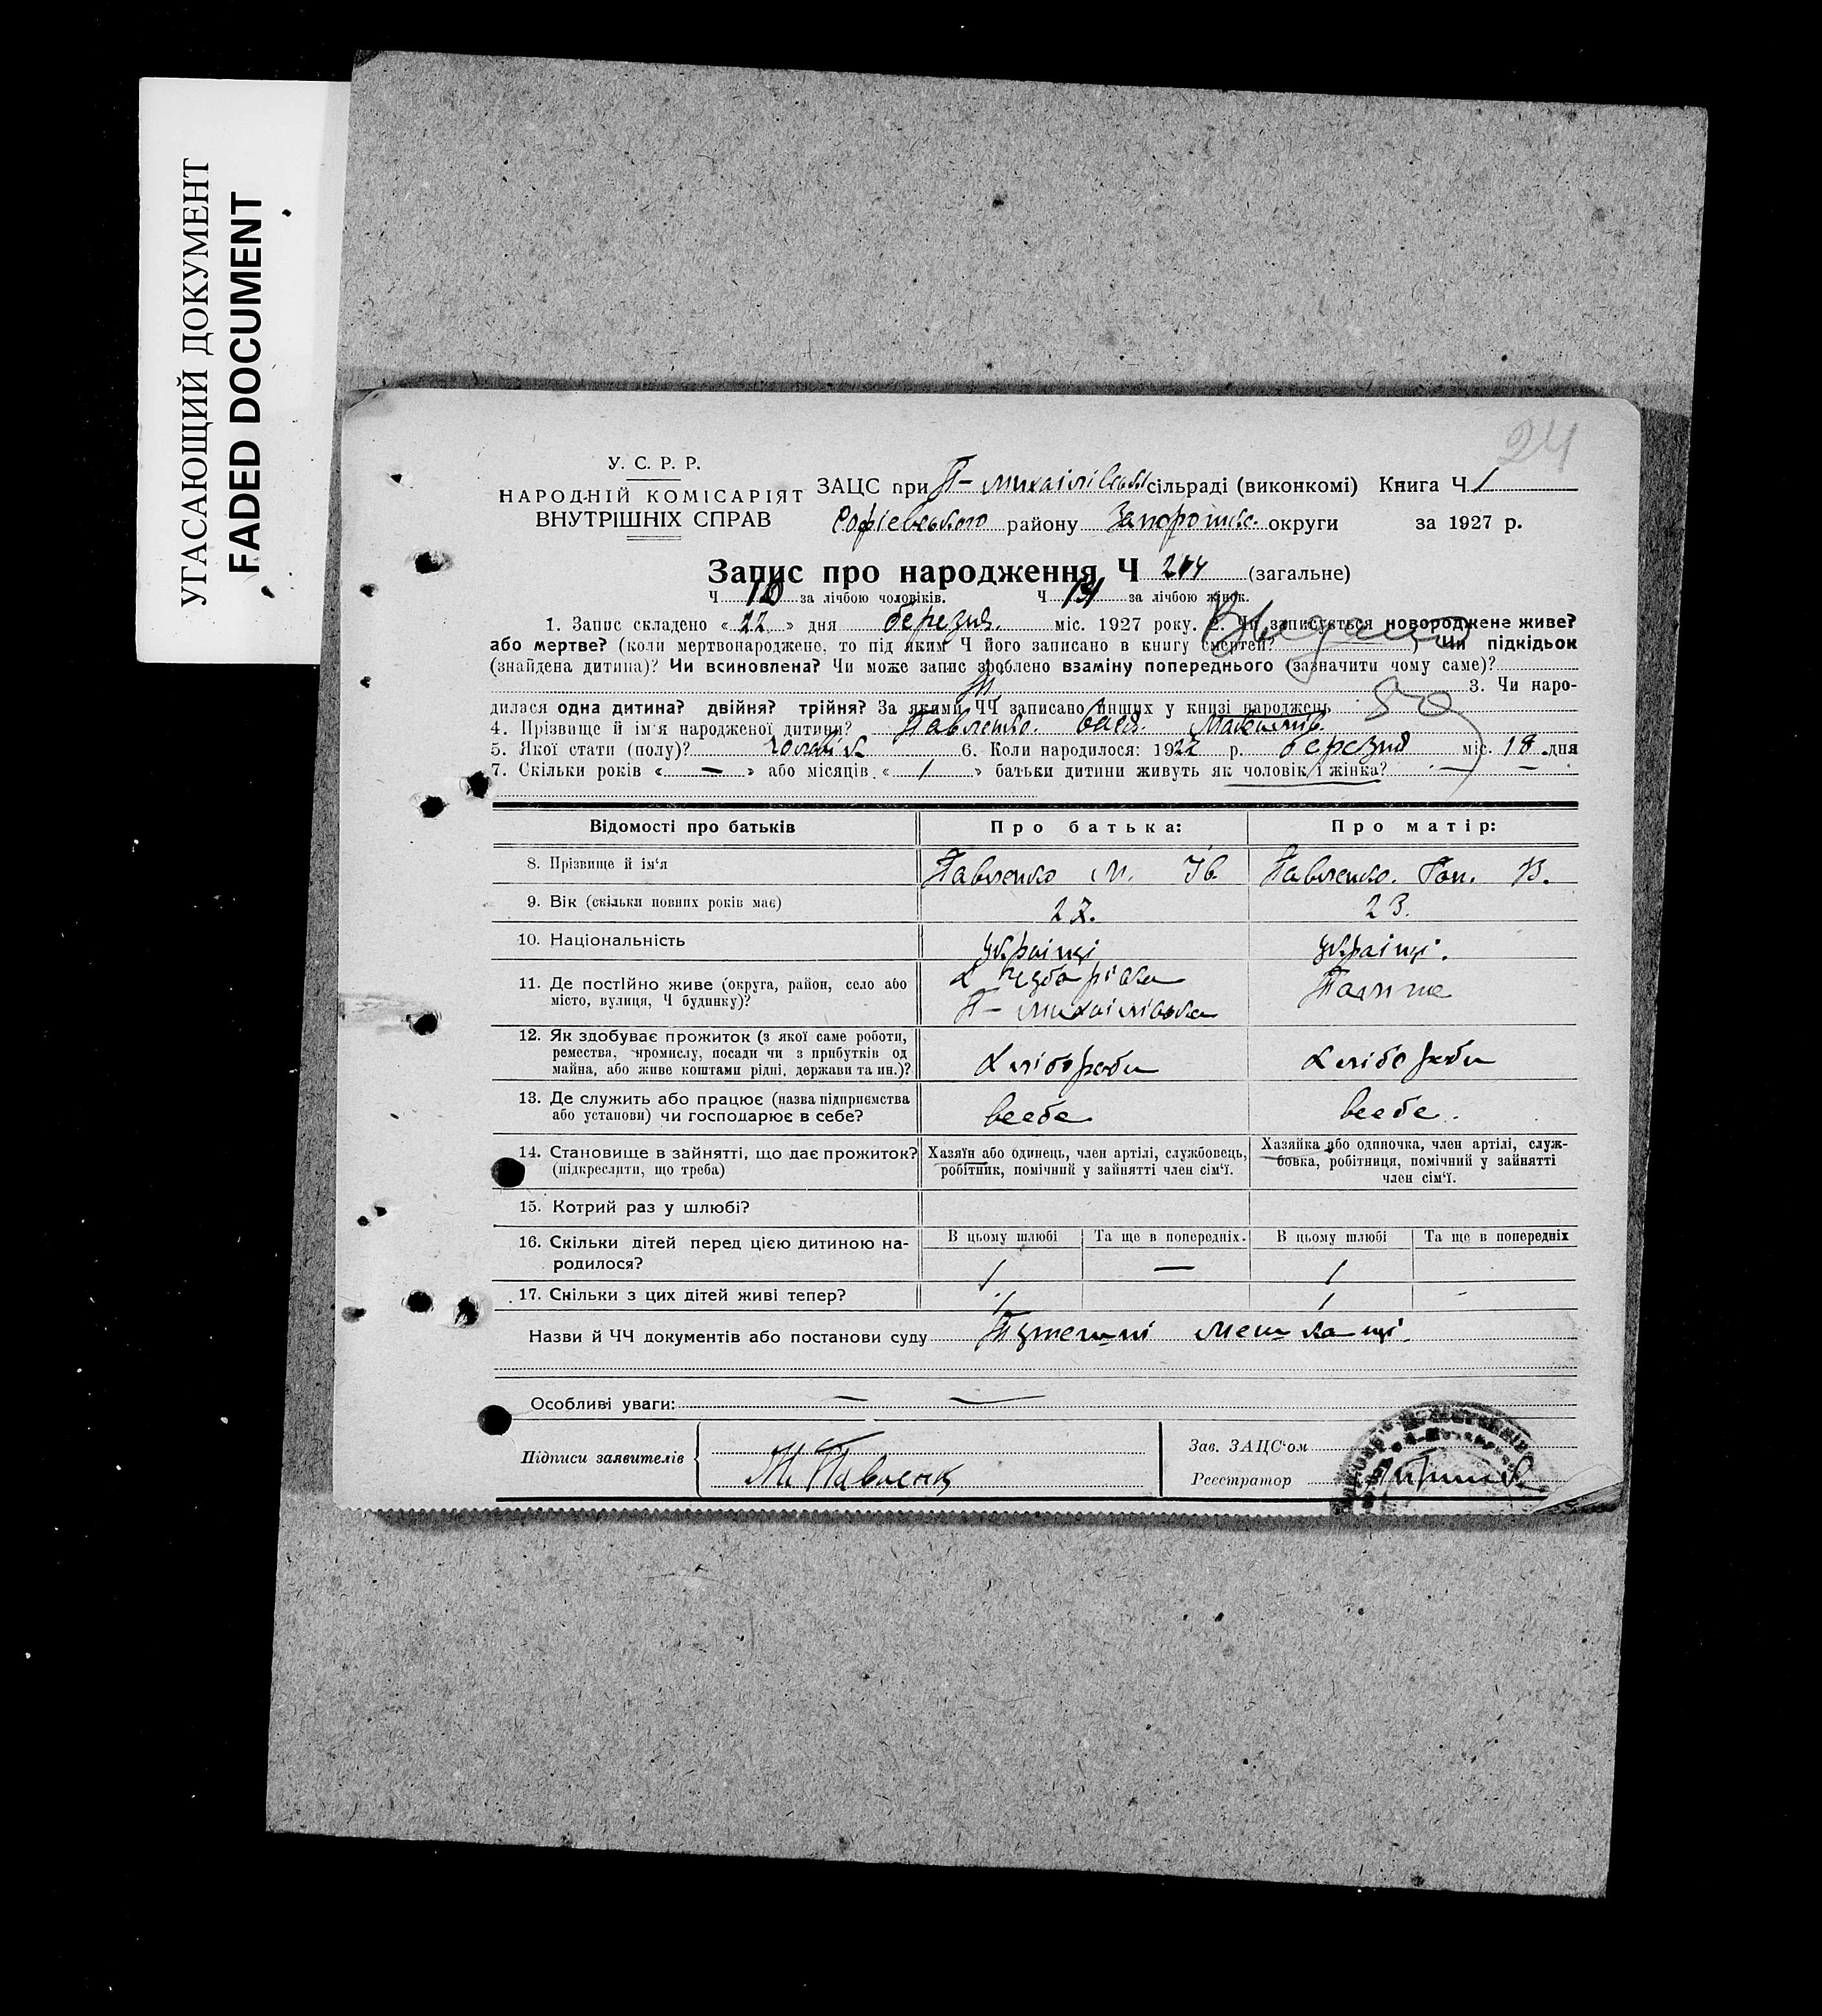 УГАСАЮЩИЙ ДОКУМЕНТ
FADED DOCUMENT
24
У. С. Р. Р.
НАРОДНІЙ КОМІСАРІЯТ
ВНУТРІШНІХ СПРАВ
ЗАЦС при П- сільраді (виконкомі) Книга Ч 1
району округи за 1927 р.
Запис про народження Ч (загальне)
Ч за лічбою чоловіків. Ч за лічбою жінок.
1. Запис складено « 22 » дня березня. міс. 1927 року. 2. Чи записується новороджене живе?
або мертве? (коли мертвонароджене, то під яким Ч його записано в книгу смертей? ) Чи підкідьок
(знайдена дитина)? Чи всиновлена? Чи може запис зроблено взаміну попереднього (зазначити чому саме)?
3. Чи наро-
дилася одна дитина? двійня? трійня? За якими ЧЧ записано инших у книзі народжень
4. Прізвище й ім'я народженої дитини? Павленко.
5. Якої стати (полу)? 6. Коли народилося: 1927 р. березня міс. 18 дня
7. Скільки років « — » або місяців « 1 » батьки дитини живуть як чоловік і жінка? — —
Відомості про батьків
Про батька:
Про матір:
8. Прізвище й ім'я
Павленко М. Ів
Павленко. В.
9. Вік (скільки повних років має)
27.
23.
10. Національність
українці
українці.
11. Де постійно живе (округа, район, село або
місто, вулиця, Ч будинку)?
П- Михайлівка
12. Як здобуває прожиток (з якої саме роботи,
ремества, промислу, посади чи з прибутків од
майна, або живе коштами рідні, держави та ин.)?
хлібороби
хлібороби
13. Де служить або працює (назва підприємства
або установи) чи господарює в себе?
всебе
всебе.
14. Становище в зайнятті, що дає прожиток?
(підкреслити, що треба)
Хазяїн або одинець, член артілі, службовець,
робітник, помічний у зайнятті член сім'ї.
Хазяйка або одиночка, член артілі, служ-
бовка, робітниця, помічний у зайнятті
член сім'ї.
15. Котрий раз у шлюбі?
16. Скільки дітей перед цією дитиною на-
родилося?
В цьому шлюбі
Та ще в попередніх.
В цьому шлюбі
Та ще в попередніх
1
—
1
17. Скільки з цих дітей живі тепер?
1
1
Назви й ЧЧ документів або постанови суду мешканці.
Особливі уваги: — —
Підписи заявителів
М Павленко
Зав. ЗАЦС'ом
Реєстратор